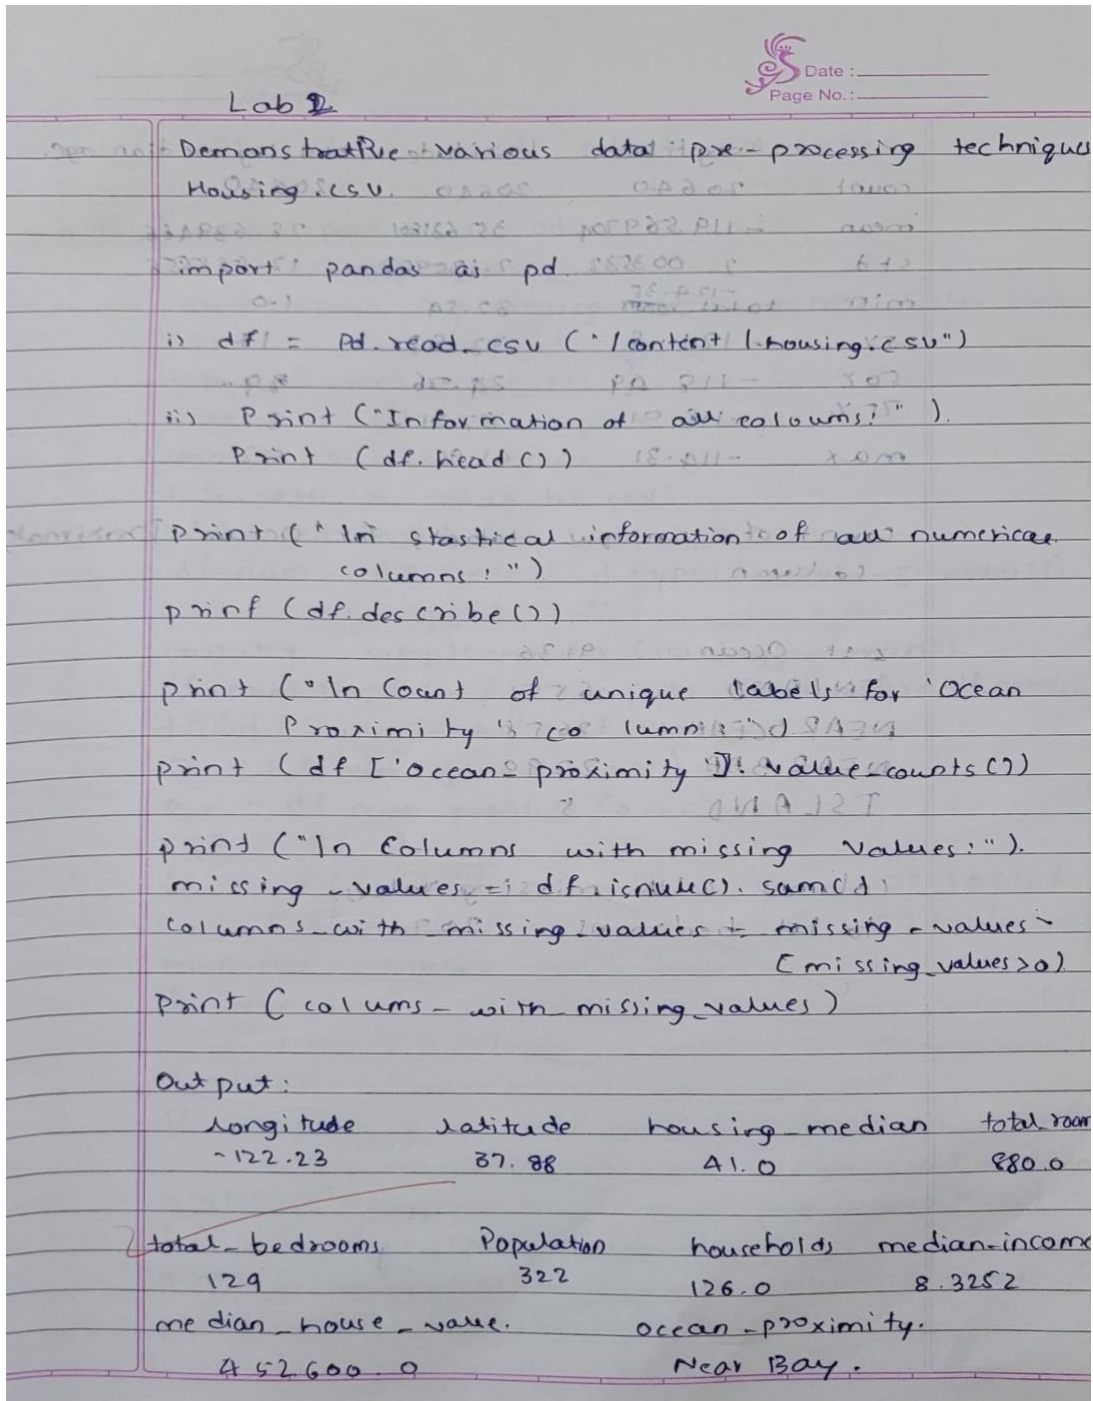 Date :
Page No.:
Lab 2
Demonstrative various data pre-processing techniques
Housing.csv.
import pandas as pd.
i) df = Pd.read_csv ("/content/.housing.csv")
ii) Print ("Information of all coloums:").
Print (df.head())
print ("\n stastical information of all numerical
columns:")
print (df.describe())
print ("\n Count of unique labels for 'Ocean
Proximity' column:")
print (df ['ocean_proximity'].value_counts())
print ("\n Columns with missing values:").
missing_values = df.isnull().sum()
columns_with_missing_values = missing_values
[missing_values>0]
Print (colums_with_missing_values)
Output:
longitude latitude housing_median total_room
-122.23 37.88 41.0 880.0
total_bedrooms Population households median-income
129 322 126.0 8.3252
median_house_value. ocean_proximity.
452600.0 Near Bay.